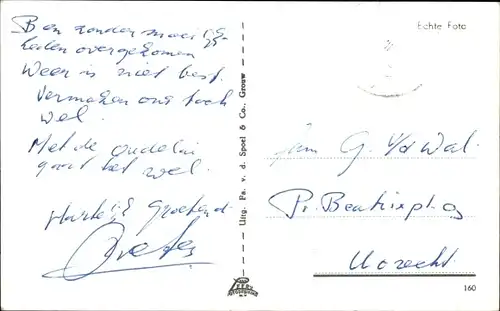 Ben zonder moeilig-
heden overgekomen
Weer is niet best.
Vermaken ons toch
wel.
Met de oudelui
gaat het wel.
Hartelijk Groeten d.
Uitg. Fa. v. d. Spoel & Co., Grouw
Echte Foto
Fam G. v/d Wal.
Pr. Beatrixpl.
Utrecht
160